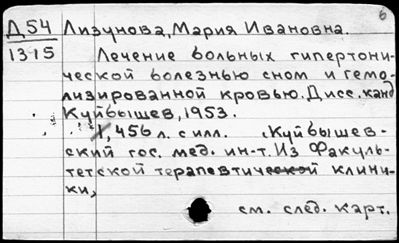 6
Д54 Лизунова, Мария Ивановна.
1315 Лечение больных гипертони-
ческой болезнью сном и гемо-
лизированной кровью. Дисс. канд
Куйбышев, 1953.
1, 456 л. с илл. Куйбышев-
ский гос. мед. ин-т. Из Факуль-
тетской терапевтической клини-
ки,
см. след. карт.